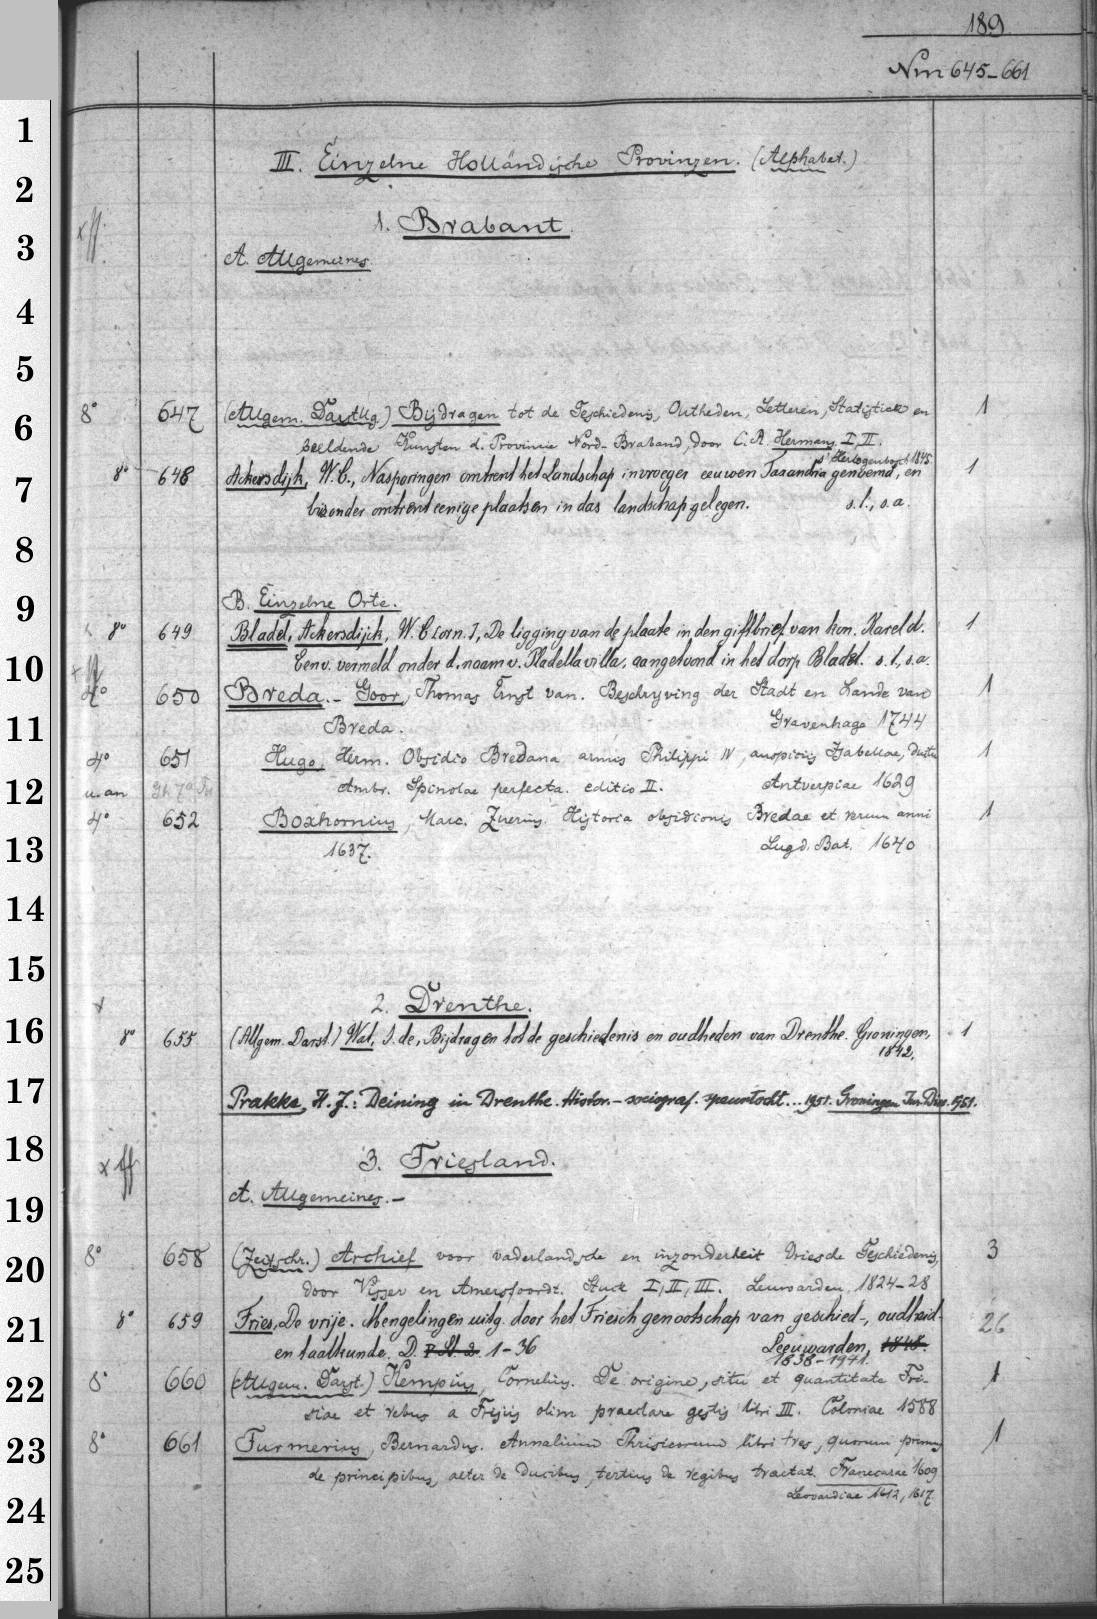 189
Nrn 645-661
III. Einzelne Holländische Provinzen. (Alphabet.)
1. Brabant.
A. Allgemeines.
8° 647 (Allgem. Darstllg.) Bijdragen tot de Geschiedenis, Oudheden, Letteren, Statistiek en 1
beeldende Kunsten d. Provincie Nord-Braband, door C. R. Hermans I, II.
s' Hertogenbosch 1845.
8° 648 Ackersdijk, W. C., Nasporingen omtrent het Landschap invroeger eeuwen Taxandria genoemd, en 1
bizonder omtrent eenige plaatsen in das landschap gelegen. s. l., s. a.
B. Einzelne Orte.
8° 649 Bladel, Ackersdijck, W. C. corn. J, De ligging van de plaate in den giftbrief van kon. Karel d. 1
Eenv. vermeld onder d. naam v. Pladella villa, aangetoond in het dorp Bladel. s. l., s. a.
4° 650 Breda. - Goor, Thomas Ernst van. Beschryving der Stadt en Lande van 1
Breda. Gravenhage 1744
4° 651 Hugo, Herm. Obsidio Bredana armis Philippi IV, auspiciis Isabellae, ductu 1
u. an
Ambr. Spinolae perfecta. editio II. Antverpiae 1629
4° 652 Boxhornius, Marc. Zuerius. Historia obsidionis Bredae et rerum anni 1
1637. Lugd. Bat. 1640
2. Drenthe.
8° 655 (Allgem. Darst.) Wal, J. de, Bijdragen tot de geschiedenis en oudheden van Drenthe. Groningen, 1
1842.
Prakke, H. J.: Deining in Drenthe. Histor.-sociograf. speurtocht... 1951. Groningen Jur. Diss. 1951.
3. Friesland.
A. Allgemeines.-
8° 658 (Zeitschr.) Archief voor vaderlandsche en inzonderheit Vriesche Geschiedenis, 3
door Visser en Amersfoordt. Stuck I, II, III. Leuwarden, 1824-28
8° 659 Fries, De vrije. Mengelingen uitg. door het Friesch genootschap van geschied-, oudheid- 26
en taalkunde. D. 1-36 Leeuwarden, 1848.
1838-1941.
8° 660 (Allgem. Darst.) Kempius, Cornelius. De origine, situ et quantitate Fri- 1
siae et rebus a Frisiis olim praeclare gestis libri III. Coloniae 1588
8° 661 Furmerius, Bernardus. Annalium Phrisicorum libri tres, quorum primus 1
de principibus, alter de ducibus, tertius de regibus tractat. Franecarae 1609
Leovardiae 1612, 1617
1
2
3
4
5
6
7
8
9
10
11
12
13
14
15
16
17
18
19
20
21
22
23
24
25